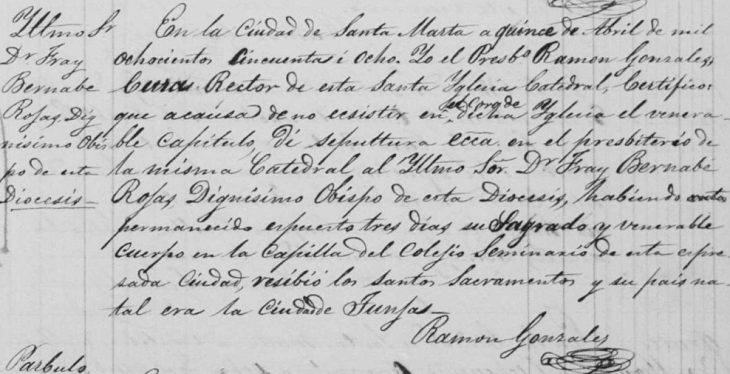 Yltmo Sr
Dr Fray
Bernabe
Rojas, Dig
nisimo Obis
po de esta
Diocesis_
En la Ciudad de Santa Marta a quince de Abril de mil
ochocientos cincuenta i ocho. Yo el Presbo Ramon Gonzales,
Cura Rector de esta Santa Yglecia Catedral, Certifico:
que acausa de no ecsistir en dicha Yglecia el venera-
ble Capitulo, Di sepultura ecca en el presbiterio de
la misma Catedral al Yltmo Sor. Dr Fray Bernabe
Rojas, Dignisimo Obispo de esta Diocesis, habiendo
permanecido espuesto tres dias su Sagrado y venerable
cuerpo en la Capilla del Colejio Seminario de esta espre-
sada Ciudad, resibió los Santos Sacramentos y su pais na-
tal era la Ciudad de Tunja_
Ramon Gonzales
Parbulo